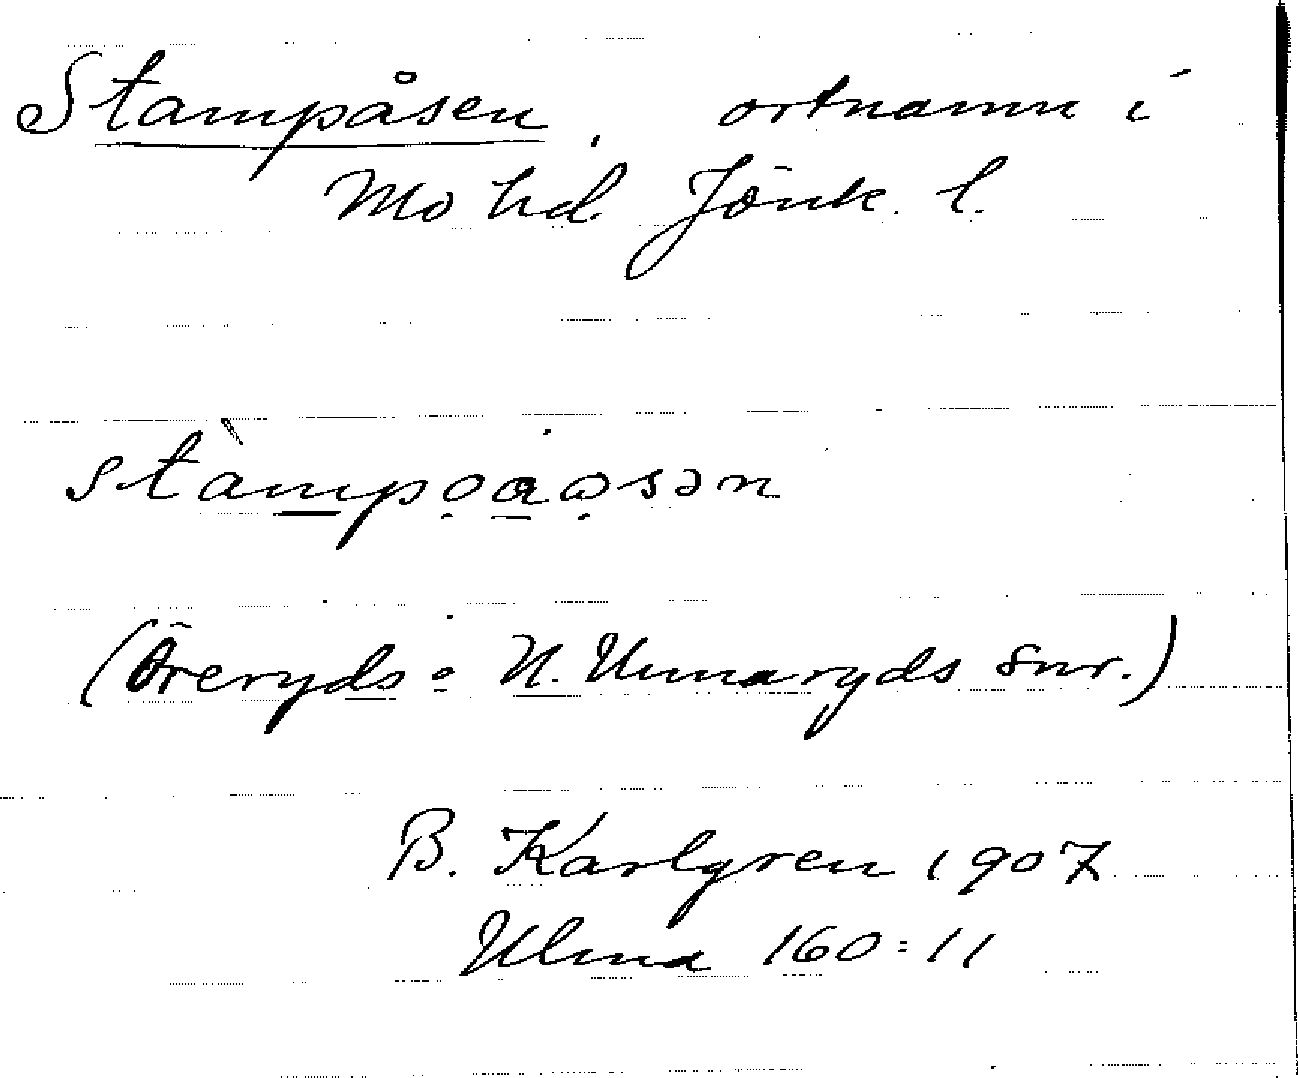 Stampåsen, ortnamn i
Mo hd. Jönk. l.
stàmpọa̱ọsən
(Öreryds o N. Unnaryds snr.)
B. Karlgren 1907
Ulma 160:11